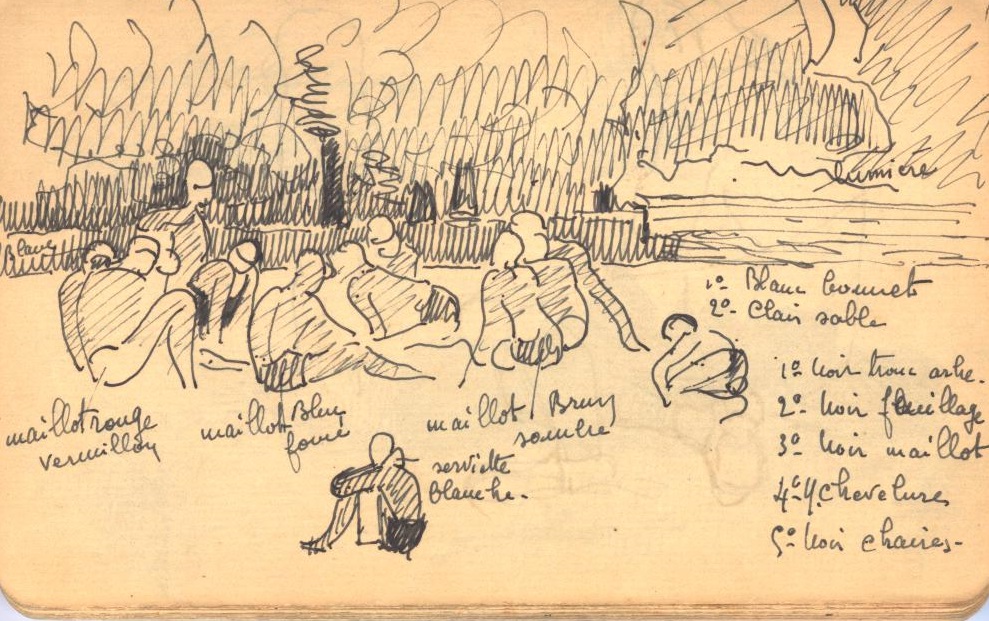 lumière
Blanc
1º- Blanc bonnets
2º- Clair sable
1º Noir tronc arbre.
2º- Noir feuillage
3º Noir maillot
4º- chevelures
5º- Noir chaires-
maillot rouge
vermillon
maillot Bleu
foncé
maillot Brun
sombre
serviette
Blanche.